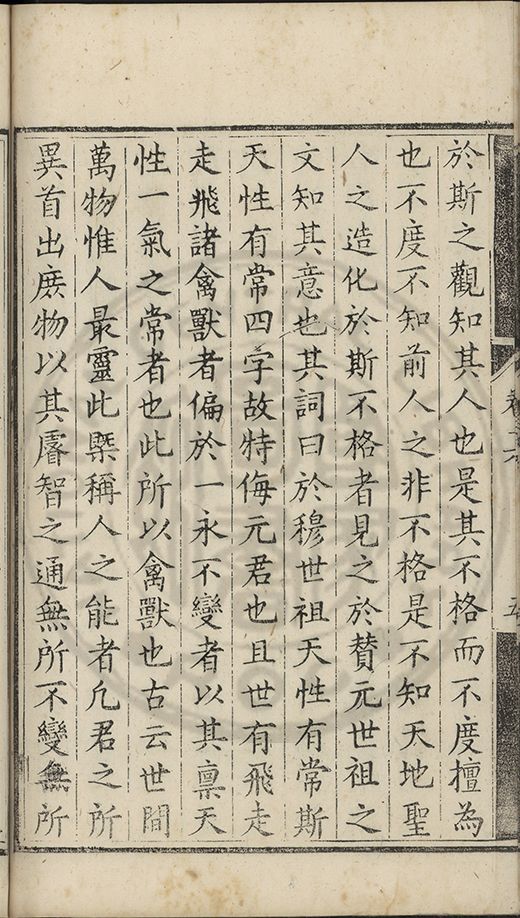 於斯之觀知其人也是其不格而不度擅為
也不度不知前人之非不格是不知天地聖
人之造化於斯不格者見之於贊元世祖之
文知其意也其詞曰於穆世祖天性有常斯
天性有常四字故特侮元君也且世有飛走
走飛諸禽獸者偏於一永不變者以其禀天
性一氣之常者也此所以禽獸也古云世間
萬物惟人最靈此槩稱人之能者凢君之所
異首出庻物以其睿智之通無所不變無所